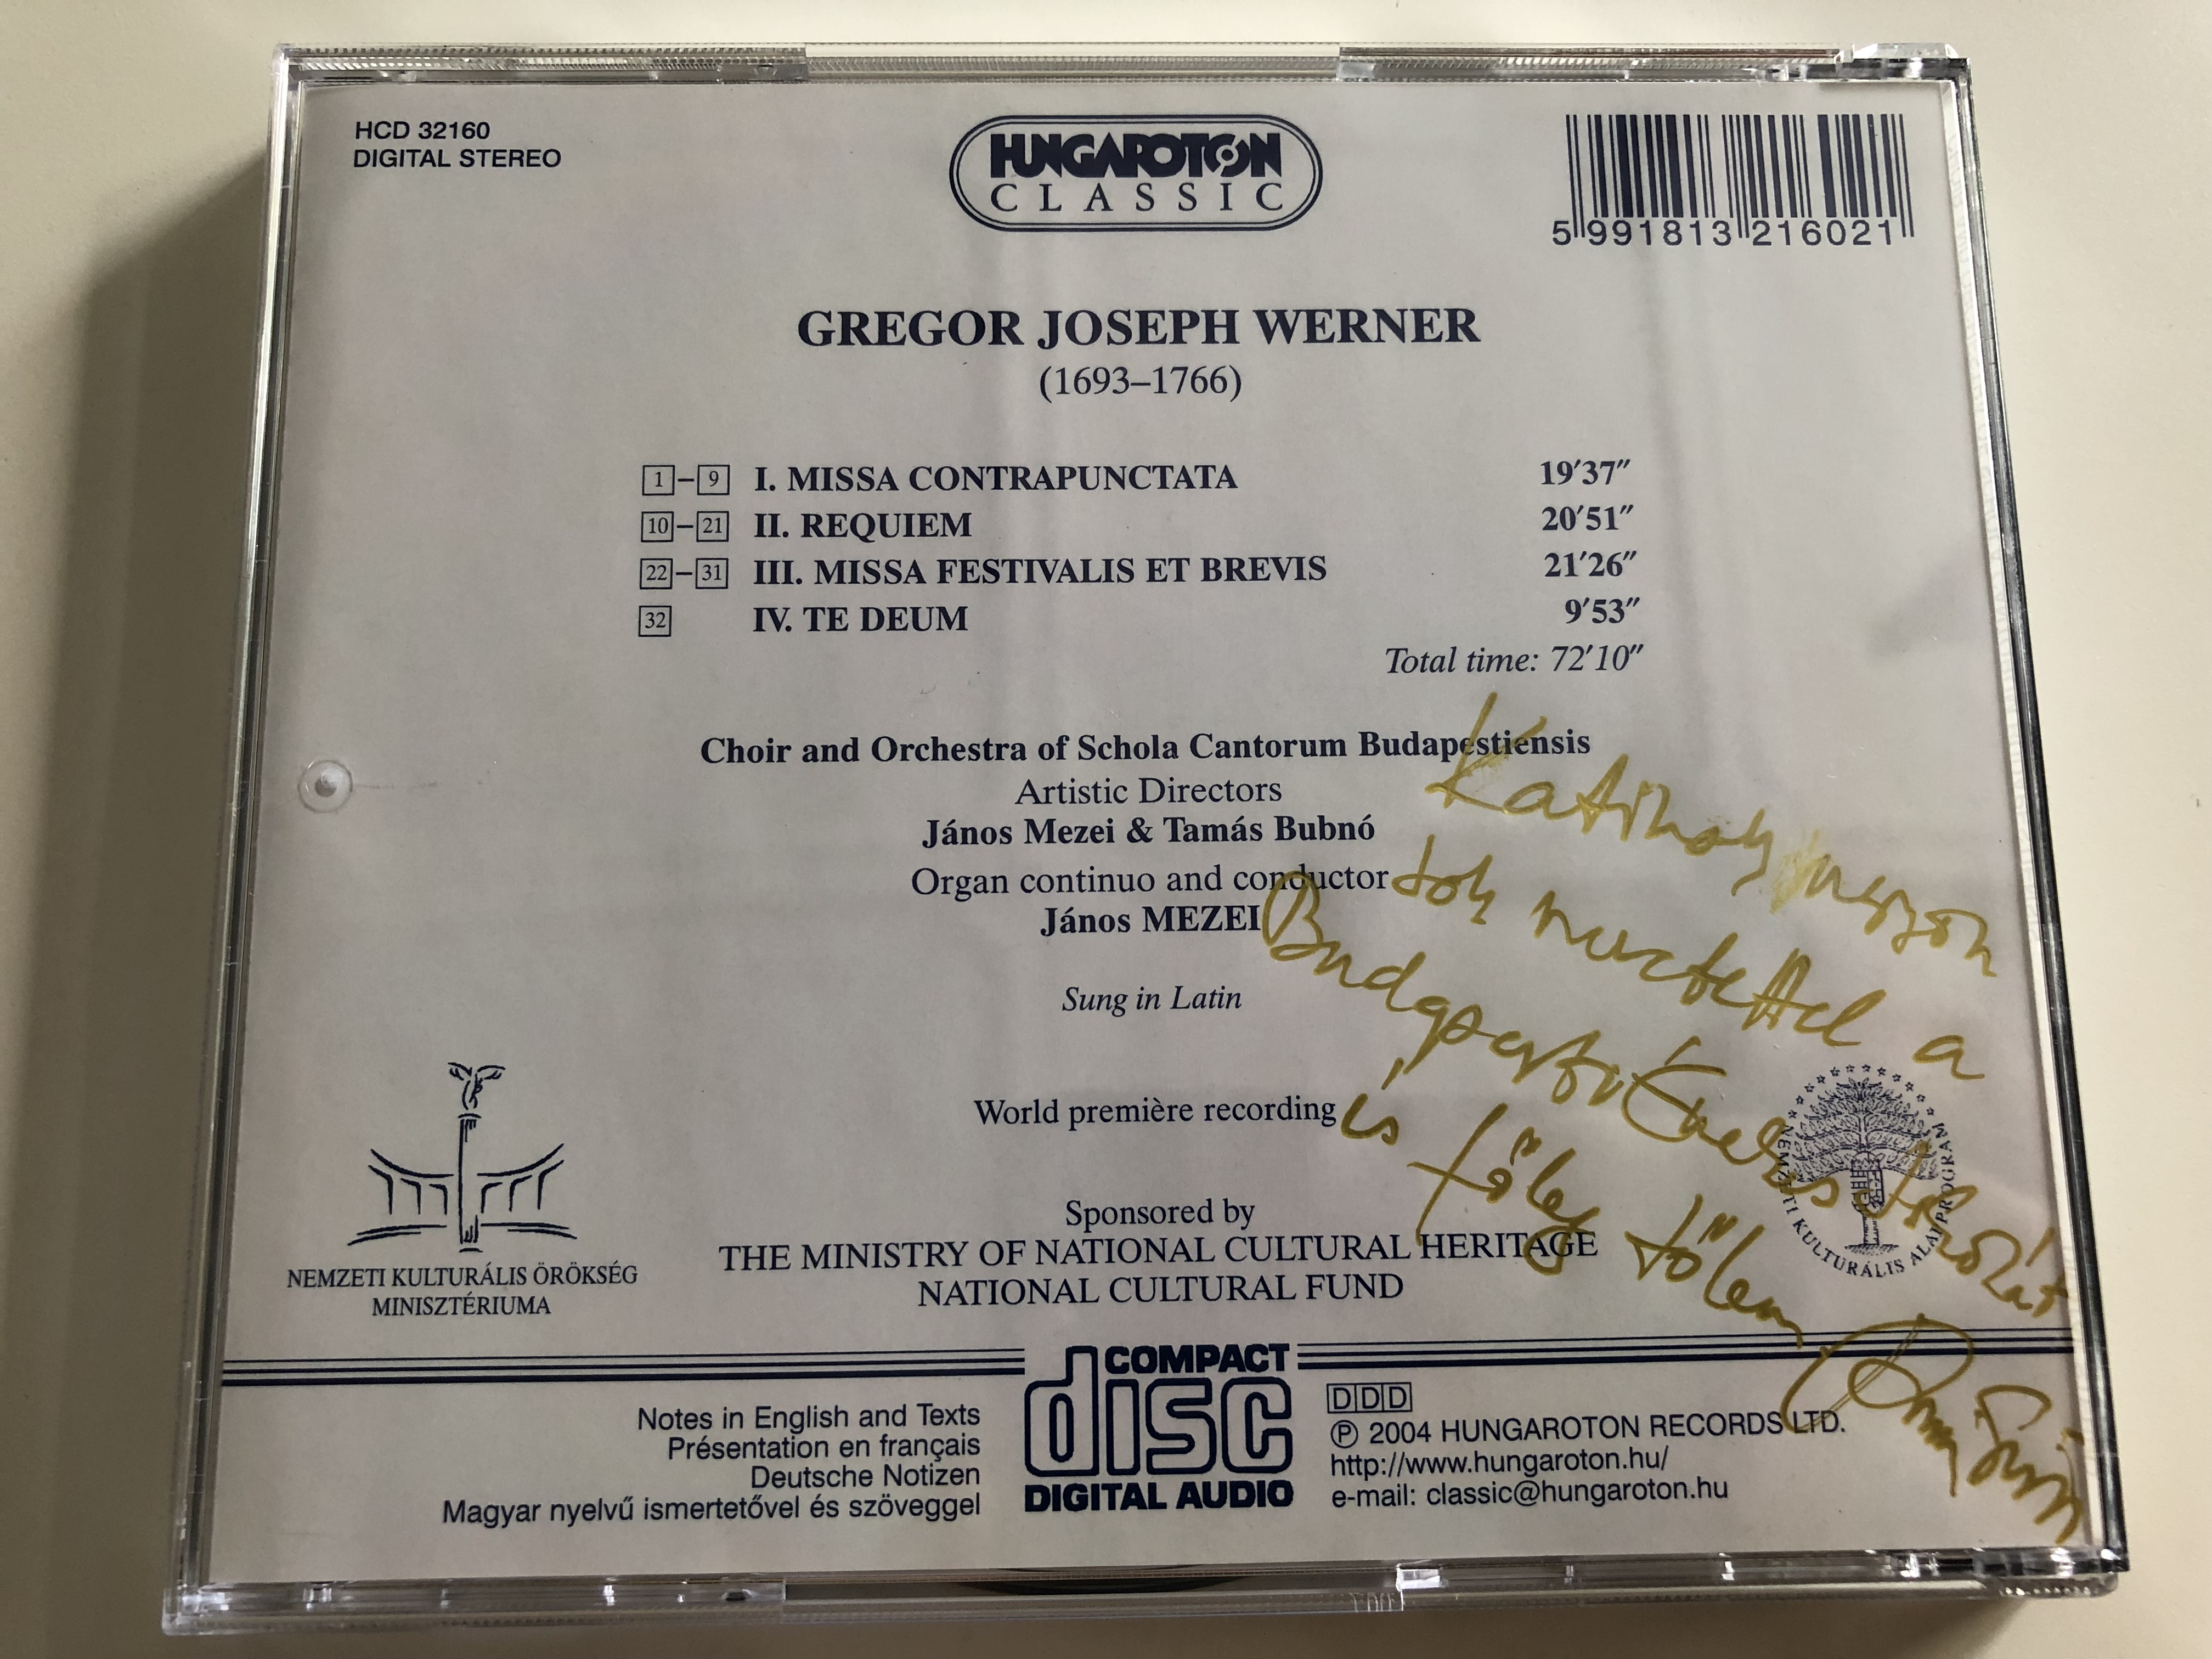 HCD 32160
DIGITAL STEREO
HUNGAROTON
CLASSIC
5 991813 216021
GREGOR JOSEPH WERNER
(1693–1766)
1–9 I. MISSA CONTRAPUNCTATA 19′37″
10–21 II. REQUIEM 20′51″
22–31 III. MISSA FESTIVALIS ET BREVIS 21′26″
32 IV. TE DEUM 9′53″
Total time: 72′10″
Choir and Orchestra of Schola Cantorum Budapestiensis
Artistic Directors
János Mezei & Tamás Bubnó
Organ continuo and conductor
János MEZEI
Sung in Latin
World première recording
Sponsored by
THE MINISTRY OF NATIONAL CULTURAL HERITAGE
NATIONAL CULTURAL FUND
NEMZETI KULTURÁLIS ÖRÖKSÉG
MINISZTÉRIUMA
NEMZETI KULTURÁLIS ALAPPROGRAM
Katinak nagyon
sok szeretettel a
Budapesti Énekes Iskolát
és főleg tőlem
Notes in English and Texts
Présentation en français
Deutsche Notizen
Magyar nyelvű ismertetővel és szöveggel
COMPACT
disc
DIGITAL AUDIO
DDD
℗ 2004 HUNGAROTON RECORDS LTD.
http://www.hungaroton.hu/
e-mail: classic@hungaroton.hu